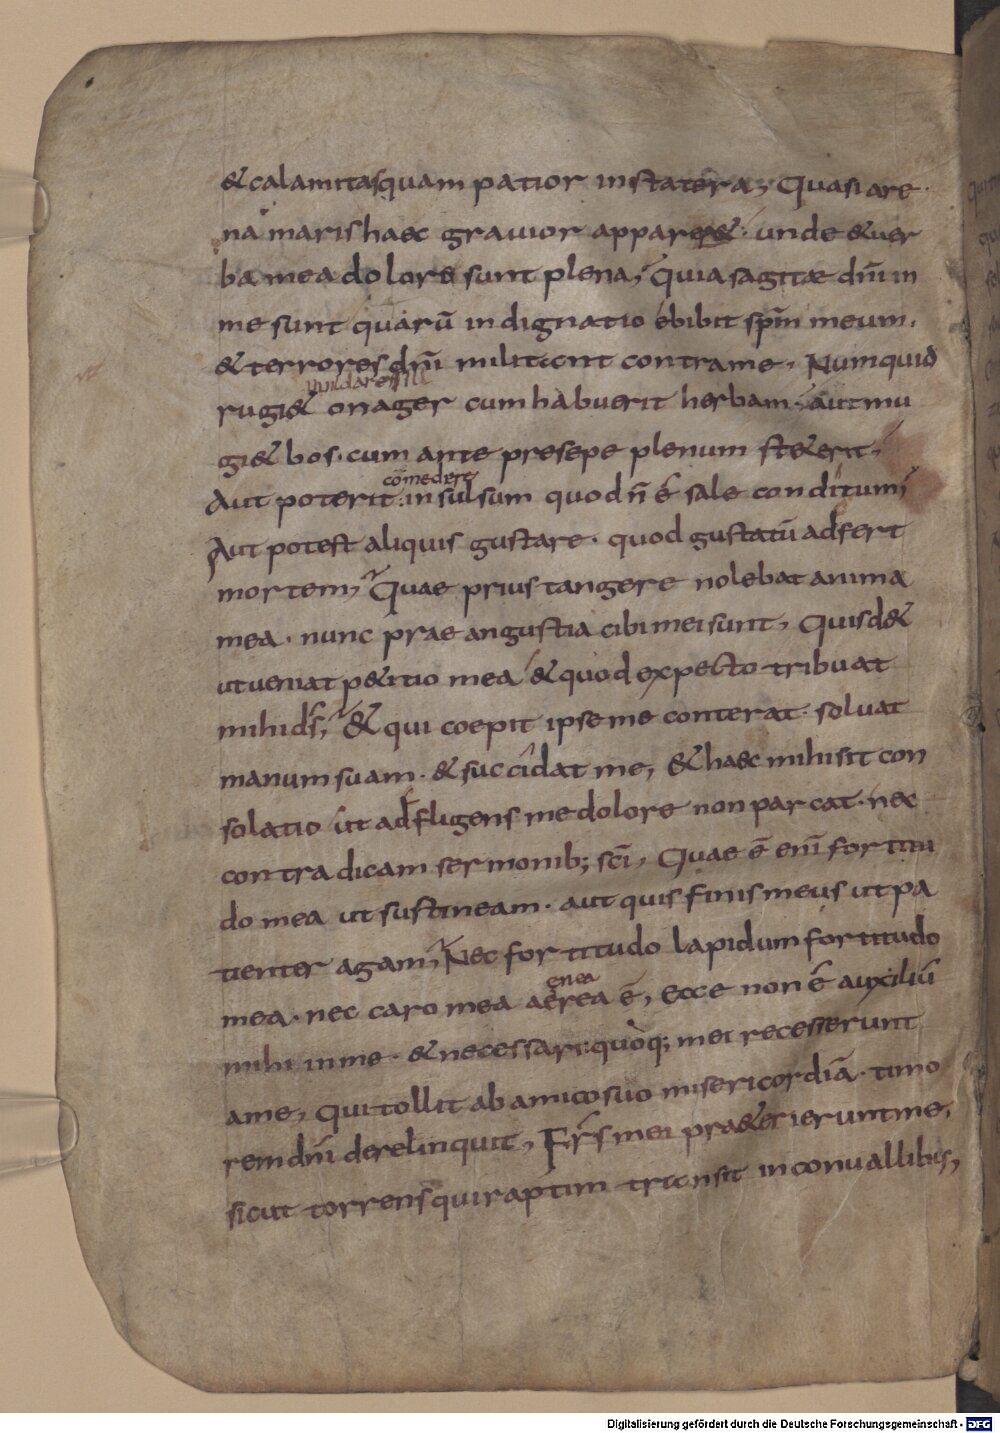 & calamitas quam patior in statera; Quasi are
na maris haec grauior apparer&. unde & uer
ba mea dolore sunt plena; Quia sagitae dñi in
me sunt quarū indignatio ebibit spm̄ meum.
& terrores dñi militant contra me; Numquid
rugi& onager cum habuerit herbam; aut mu
gi& bos. cum ante presepe plenum st&erit;
comedere
Aut poterit insulsum quod ñ ē sale conditum;
Aut potest aliquis gustare. quod gustatū adfert
mortem; Quae prius tangere nolebat anima
mea. nunc prae angustia cibi mei sunt; Quis d&
ut ueniat p&itio mea & quod expecto tribuat
mihi d̄s; & qui coepit ipse me conterat. soluat
manum suam. & succidat me; & haec mihi sit con
solatio ut adfligens me dolore non parcat. nec
contradicam sermonib; sc̄i; Quae ē enī fortitu
do mea ut sustineam. aut quis finis meus ut pa
tienter agam; Nec fortitudo lapidum fortitudo
enea
mea. nec caro mea aerea ē; Ecce non ē auxiliū
mihi in me. & necessarii quoq; mei recesserunt
a me; Qui tollit ab amico suo misericordiā. timo
rem dñi derelinquit; Fr̄s mei pra&erierunt me;
sicut torrens qui raptim transit in conuallibus;
Digitalisierung gefördert durch die Deutsche Forschungsgemeinschaft - DFG